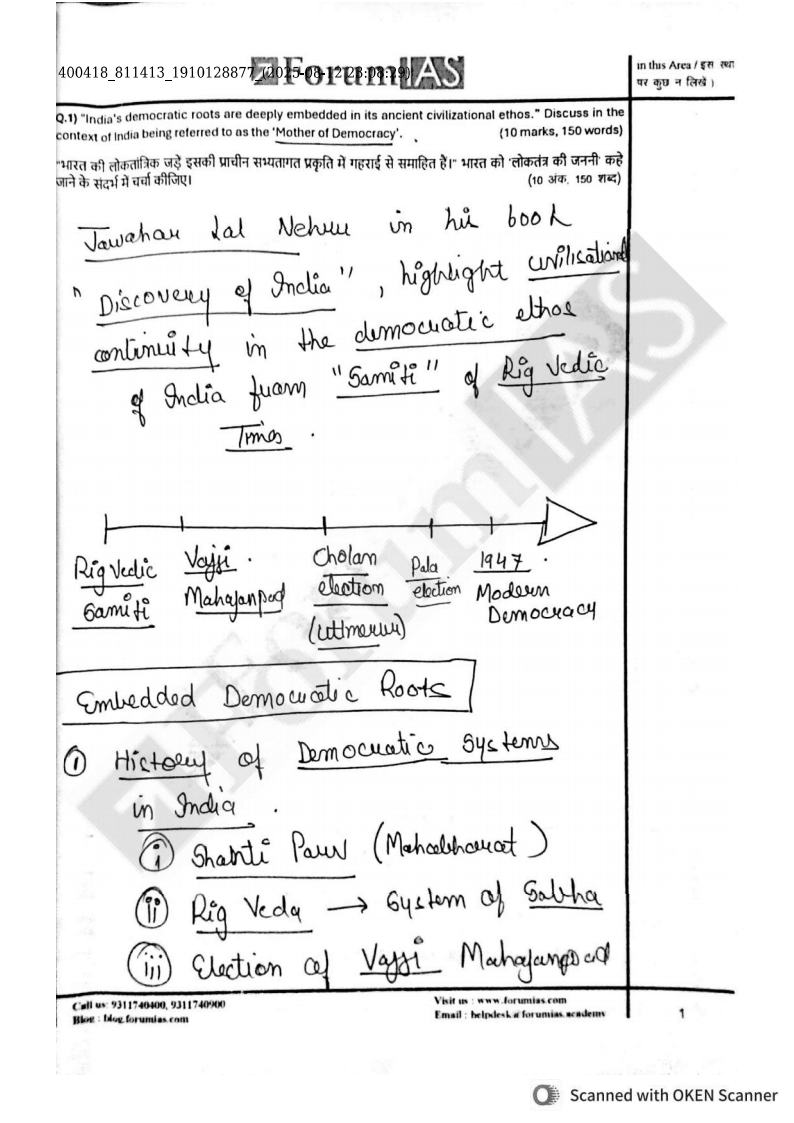 400418_811413_1910128877_(2025-08-12 23:08:29)
ForumIAS
in this Area / इस स्था
पर कुछ न लिखें ।
Q.1) "India's democratic roots are deeply embedded in its ancient civilizational ethos." Discuss in the
context of India being referred to as the 'Mother of Democracy'. (10 marks, 150 words)
"भारत की लोकतांत्रिक जड़ें इसकी प्राचीन सभ्यतागत प्रकृति में गहराई से समाहित हैं।" भारत को 'लोकतंत्र की जननी' कहे
जाने के संदर्भ में चर्चा कीजिए। (10 अंक, 150 शब्द)
Jawahar Lal Nehru in his book
"Discovery of India", highlight civilisational
continuity in the democratic ethos
of India from "Samiti" of Rig Vedic
Times.
Rig Vedic
Samiti
Vajji
Mahajanpad
Cholan
election
(Uttmerur)
Pala
election
1947
Modern
Democracy
Embedded Democratic Roots
① History of Democratic Systems
in India.
(i) Shanti Parv (Mahabharat)
(ii) Rig Veda → System of Sabha
(iii) Election of Vajji Mahajanpad
Call us: 9311740400, 9311740900
Blog : blog.forumias.com
Visit us : www.forumias.com
Email : helpdesk@forumias.academy
1
ForumIAS
Scanned with OKEN Scanner